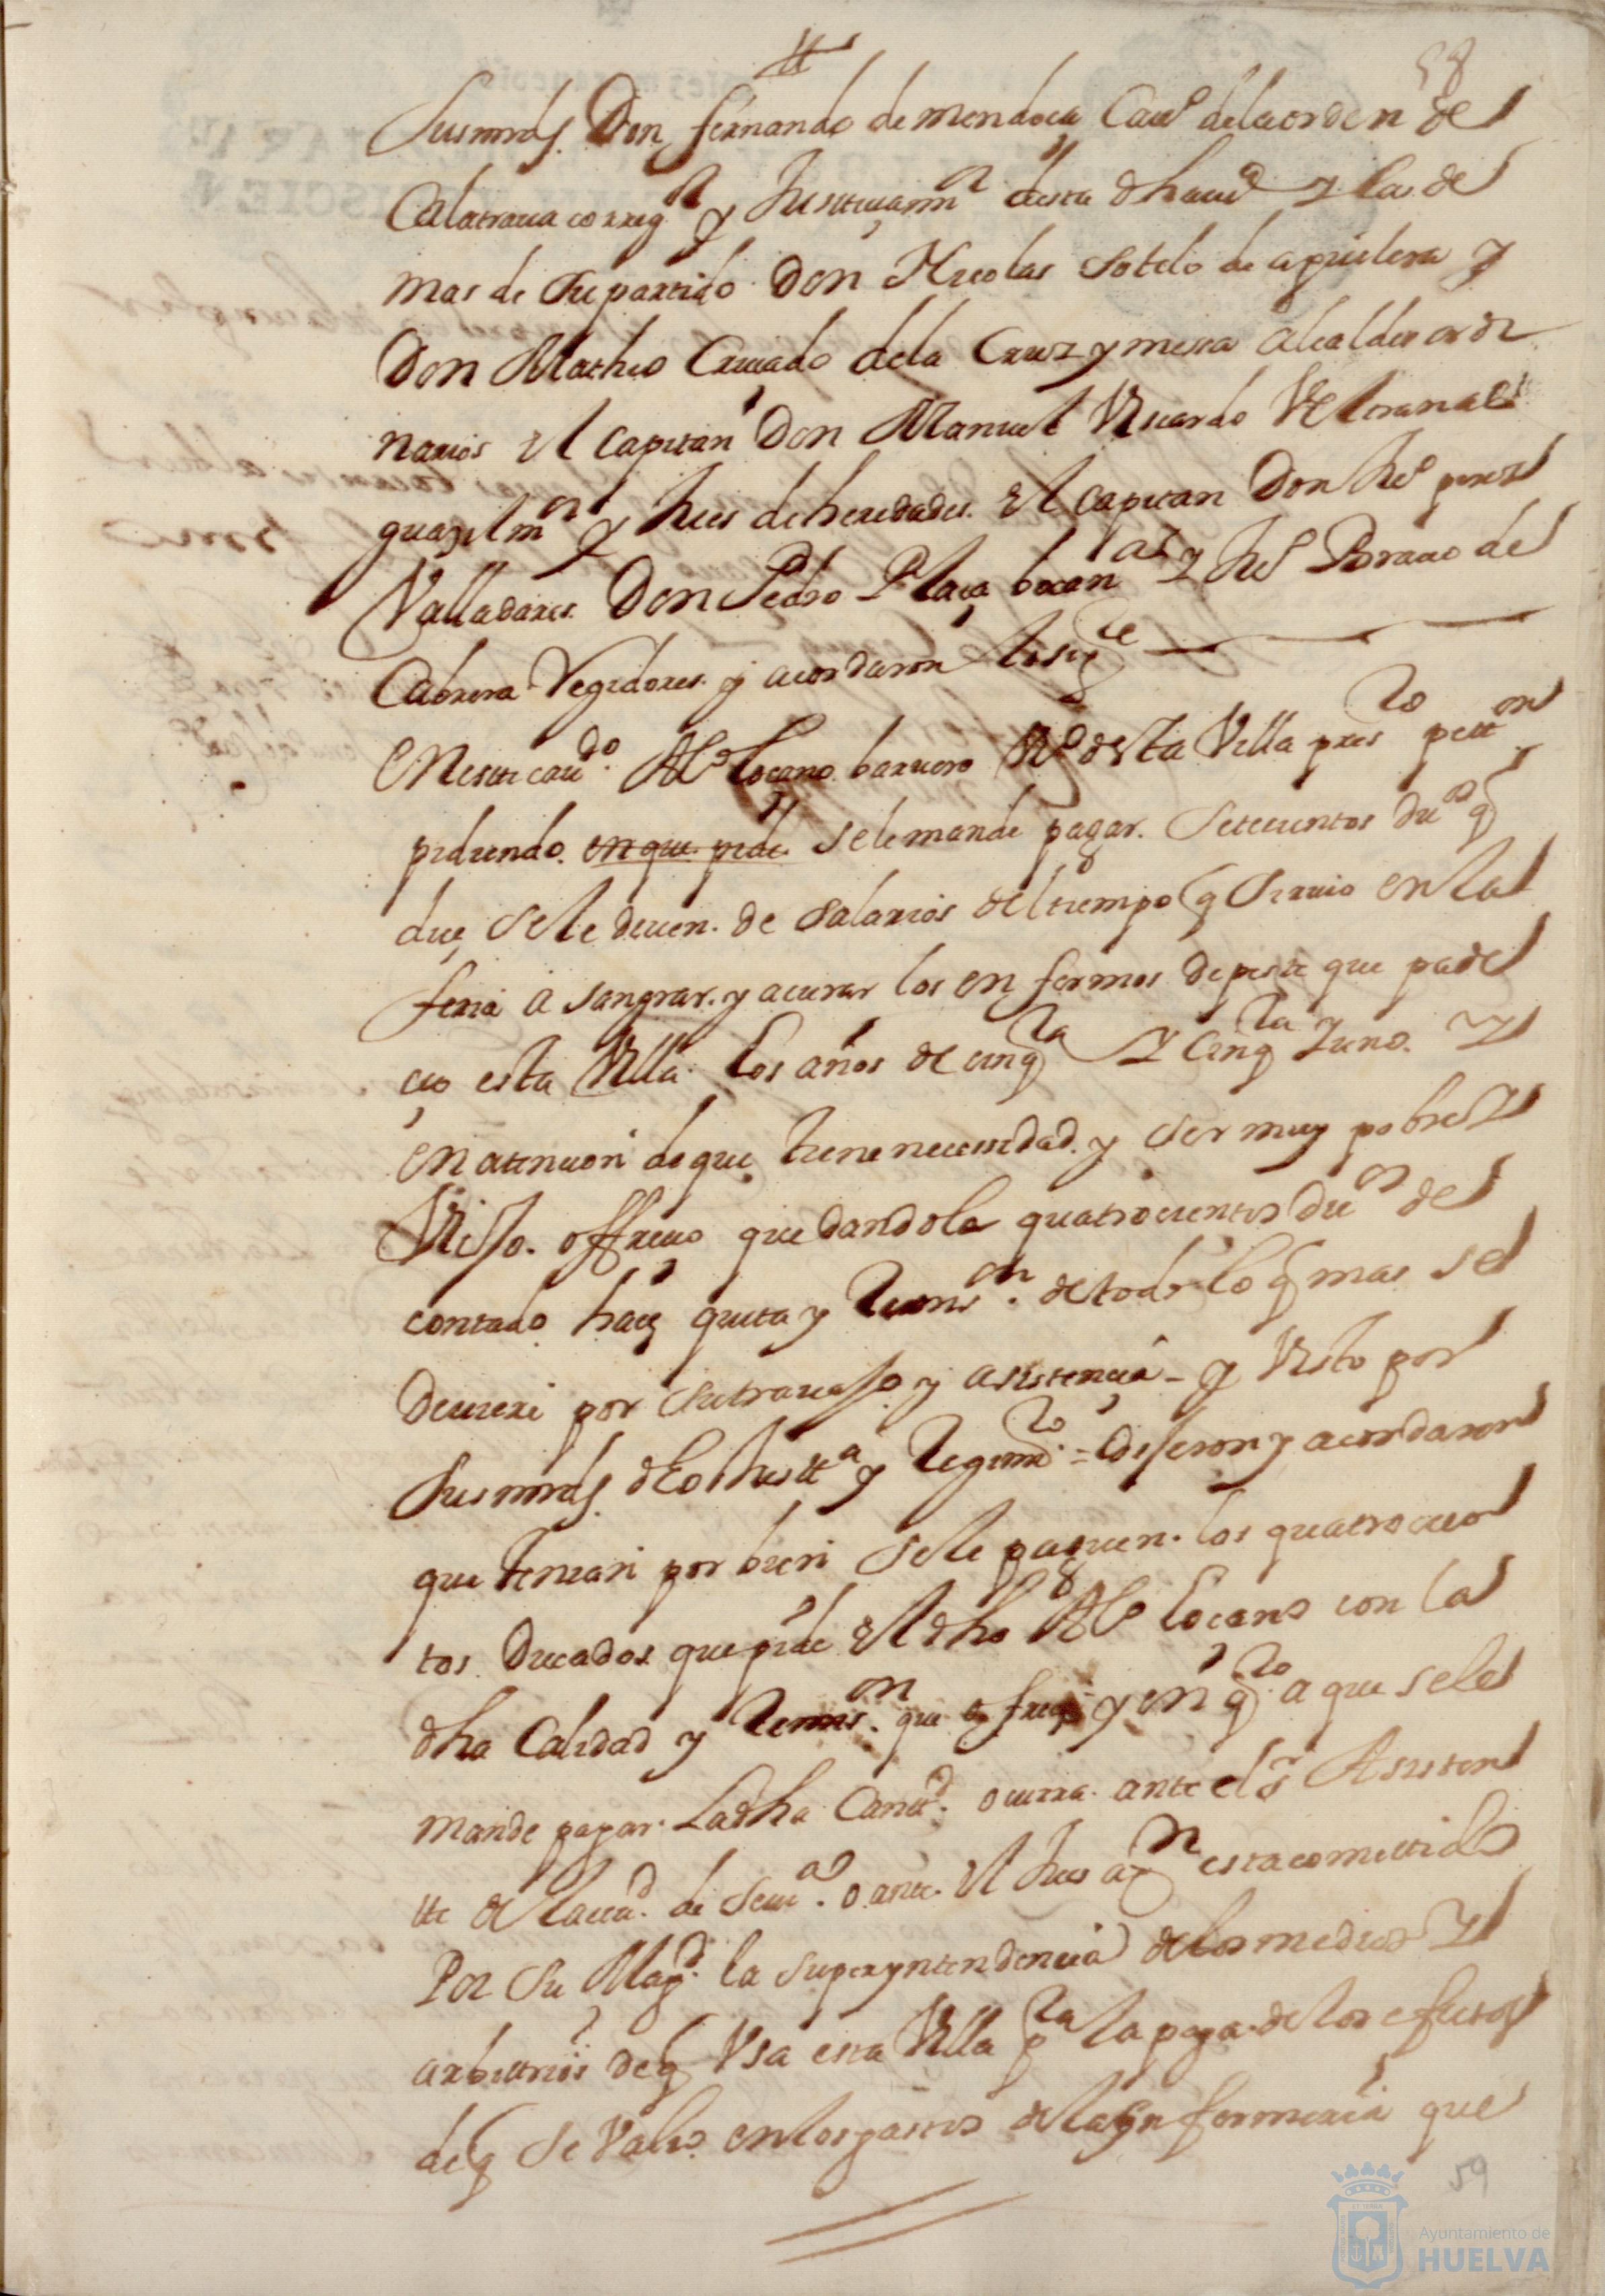 58
Susmrds. Don fernando de mendoça Cauº. dela orden de
Calatraua correg.or y Justicia mor desta dha uª y las de
mas de su partido Don Nicolas sotelo de aguilera y
Don Matheo Criado dela Cruz y messa alcaldes ordi
narios el capitan Don Manuel
guazil mor y Jues de heredades. El capitan Don Juº perez
Valladares. Don Pedro Plaça y Juº Brauo de
Cabrera Regidores. y acordaron lo sigte
En este caudo. Alº Loçano baruero Vº desta Villa presto petton
pidiendo. en que pide. se le mande pagar. Setecientos dus q
diçe se le deuen. de salarios del tiempo q siruio en la en
feria a sangrar. y a curar los en fermos de peste que pade
çio esta Villa. los años de cinqta y cinqta y uno. y
en atencion de que tiene necessidad. y ser muy pobre y
Viejo. offrecio que dandole quatrocientos dus de
contado haçe quita y Remison. de todo lo q mas se
deuiere por su trauajo y asistencia - y Visto por
Susmrds. dhos Justtª y Regimto = Dijeron y acordaron
que tenian por bien se le paguen. los quatrocien
tos Ducados que pide el dho Alº Loçano con la
dha Calidad y Remison. que ofreçe y en qto a que se le
mande pagar. La dha Cantd. ocurra. ante el sr Asisten
tte de la ciud. de Seuª. o ante. el Jues a qn esta comettido
Por su Magd. la superyntendencia de los medios y
arbittrios de q Vsa esta Villa pª la paga de los efectos
de q se Valio. en los gastos de la enfermeria que
59
Ayuntamiento de
HUELVA